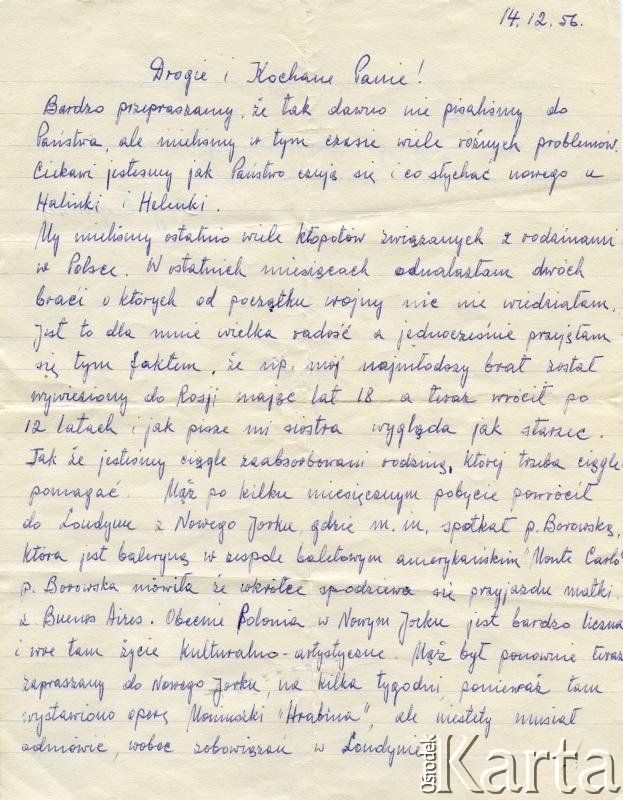 14.12.56.
Drogie i Kochane Panie!
Bardzo przepraszamy, że tak dawno nie pisaliśmy do
Państwa, ale mieliśmy w tym czasie wiele różnych problemów.
Ciekawi jesteśmy jak Państwo czują się i co słychać nowego u
Halinki i Helenki.
My mieliśmy ostatnio wiele kłopotów związanych z rodzinami
w Polsce. W ostatnich miesiącach odnalazłam dwóch
braci o których od początku wojny nic nie wiedziałam.
Jest to dla mnie wielka radość a jednocześnie przejęłam
się tym faktem, że np. mój najmłodszy brat został
wywieziony do Rosji mając lat 18 a teraz wrócił po
12 latach i jak pisze mi siostra wygląda jak starzec.
Tak że jesteśmy ciągle zaabsorbowani rodziną, której trzeba ciągle
pomagać. Mąż po kilku miesięcznym pobycie powrócił
do Londynu z Nowego Jorku, gdzie m.in. spotkał p. Borowską,
która jest baleryną w zespole baletowym amerykańskim "Monte Carlo"
p. Borowska mówiła że wkrótce spodziewa się przyjazdu matki
z Buenos Aires. Obecnie Polonia w Nowym Jorku jest bardzo liczna
i wre tam życie kulturalno-artystyczne. Mąż był ponownie teraz
zapraszany do Nowego Jorku, na kilka tygodni, ponieważ tam
wystawiono operę Moniuszki "Hrabina", ale niestety musiał
odmówić, wobec zobowiązań w Londynie
Ośrodek Karta